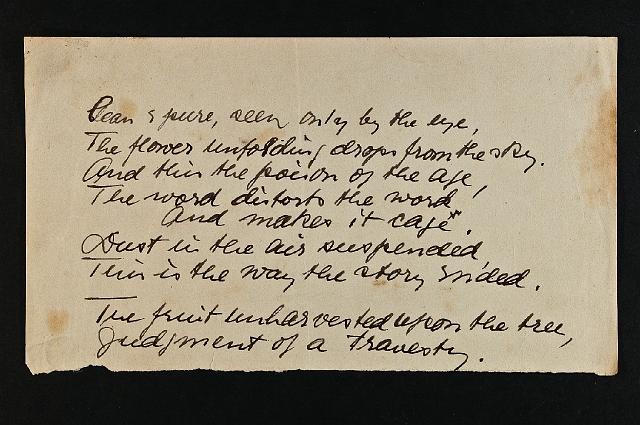 Clean & pure, seen only by the eye,
The flower unfolding drops from the sky.
And this the poison of the age,
The word distorts the word
And makes it cage*.
Dust in the air suspended
This is the way the story ended.
The fruit unharvested upon the tree,
Judgment of a Travesty.